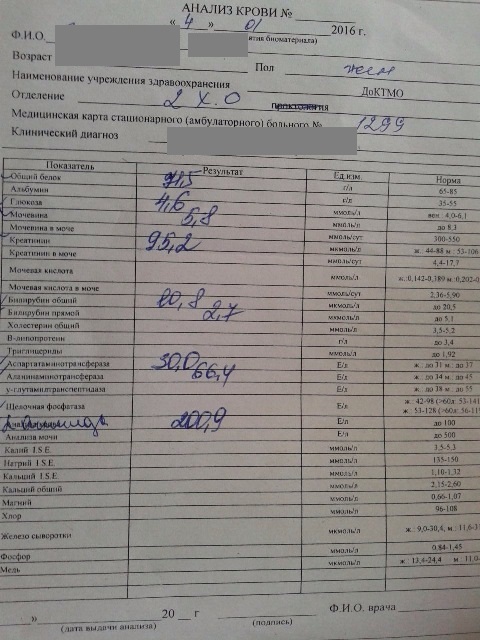 АНАЛИЗ КРОВИ №
« 4 » 01 2016 г.
Ф.И.О. биоматериала)
Возраст Пол жен
Наименование учреждения здравоохранения ДоКТМО
Отделение 2 Х.О
Медицинская карта стационарного (амбулаторного) больного № 1299
Клинический диагноз
Показатель Результат Ед.изм. Норма
Общий белок 71,5 г/л 65-85
Альбумин г/л 35-55
Глюкоза 4,6 ммоль/л вен.: 4,0-6,1
Мочевина 5,8 ммоль/л до 8,3
Мочевина в моче ммоль/сут 300-550
Креатинин 95,2 мкмоль/л ж.: 44-88 м.: 53-106
Креатинин в моче ммоль/сут 4,4-17,7
Мочевая кислота ммоль/л ж.:0,142-0,389 м.:0,202-0
Мочевая кислота в моче ммоль/сут 2,36-5,90
Билирубин общий 20,8 мкмоль/л до 20,5
Билирубин прямой 2,7 мкмоль/л до 5,1
Холестерин общий ммоль/л 3,5-5,2
В-липопротеин г/л до 3,4
Триглицериды ммоль/л до 1,92
Аспартатаминотрансфераза 30,0 Е/л ж.: до 31 м.: до 37
Аланинаминотрансфераза 66,4 Е/л ж.: до 34 м.: до 45
γ-глутамилтранспептидаза Е/л ж.: до 38 м.: до 55
Щелочная фосфатаза Е/л ж.: 42-98 (>60л: 53-141
м.: 53-128 (>60л: 56-119
200,9 Е/л до 100
Анализа мочи Е/л до 500
Калий I.S.E. ммоль/л 3,5-5,3
Натрий I.S.E. ммоль/л 135-150
Кальций I.S.E. ммоль/л 1,10-1,32
Кальций общий ммоль/л 2,15-2,60
Магний ммоль/л 0,66-1,07
Хлор ммоль/л 96-108
Железо сыворотки мкмоль/л ж.: 9,0-30,4, м.: 11,6-3
Фосфор ммоль/л 0,84-1,45
Медь мкмоль/л ж.: 13,4-24,4 м.: 11,0-
» 20 г Ф.И.О. врача
(дата выдачи анализа) (подпись)